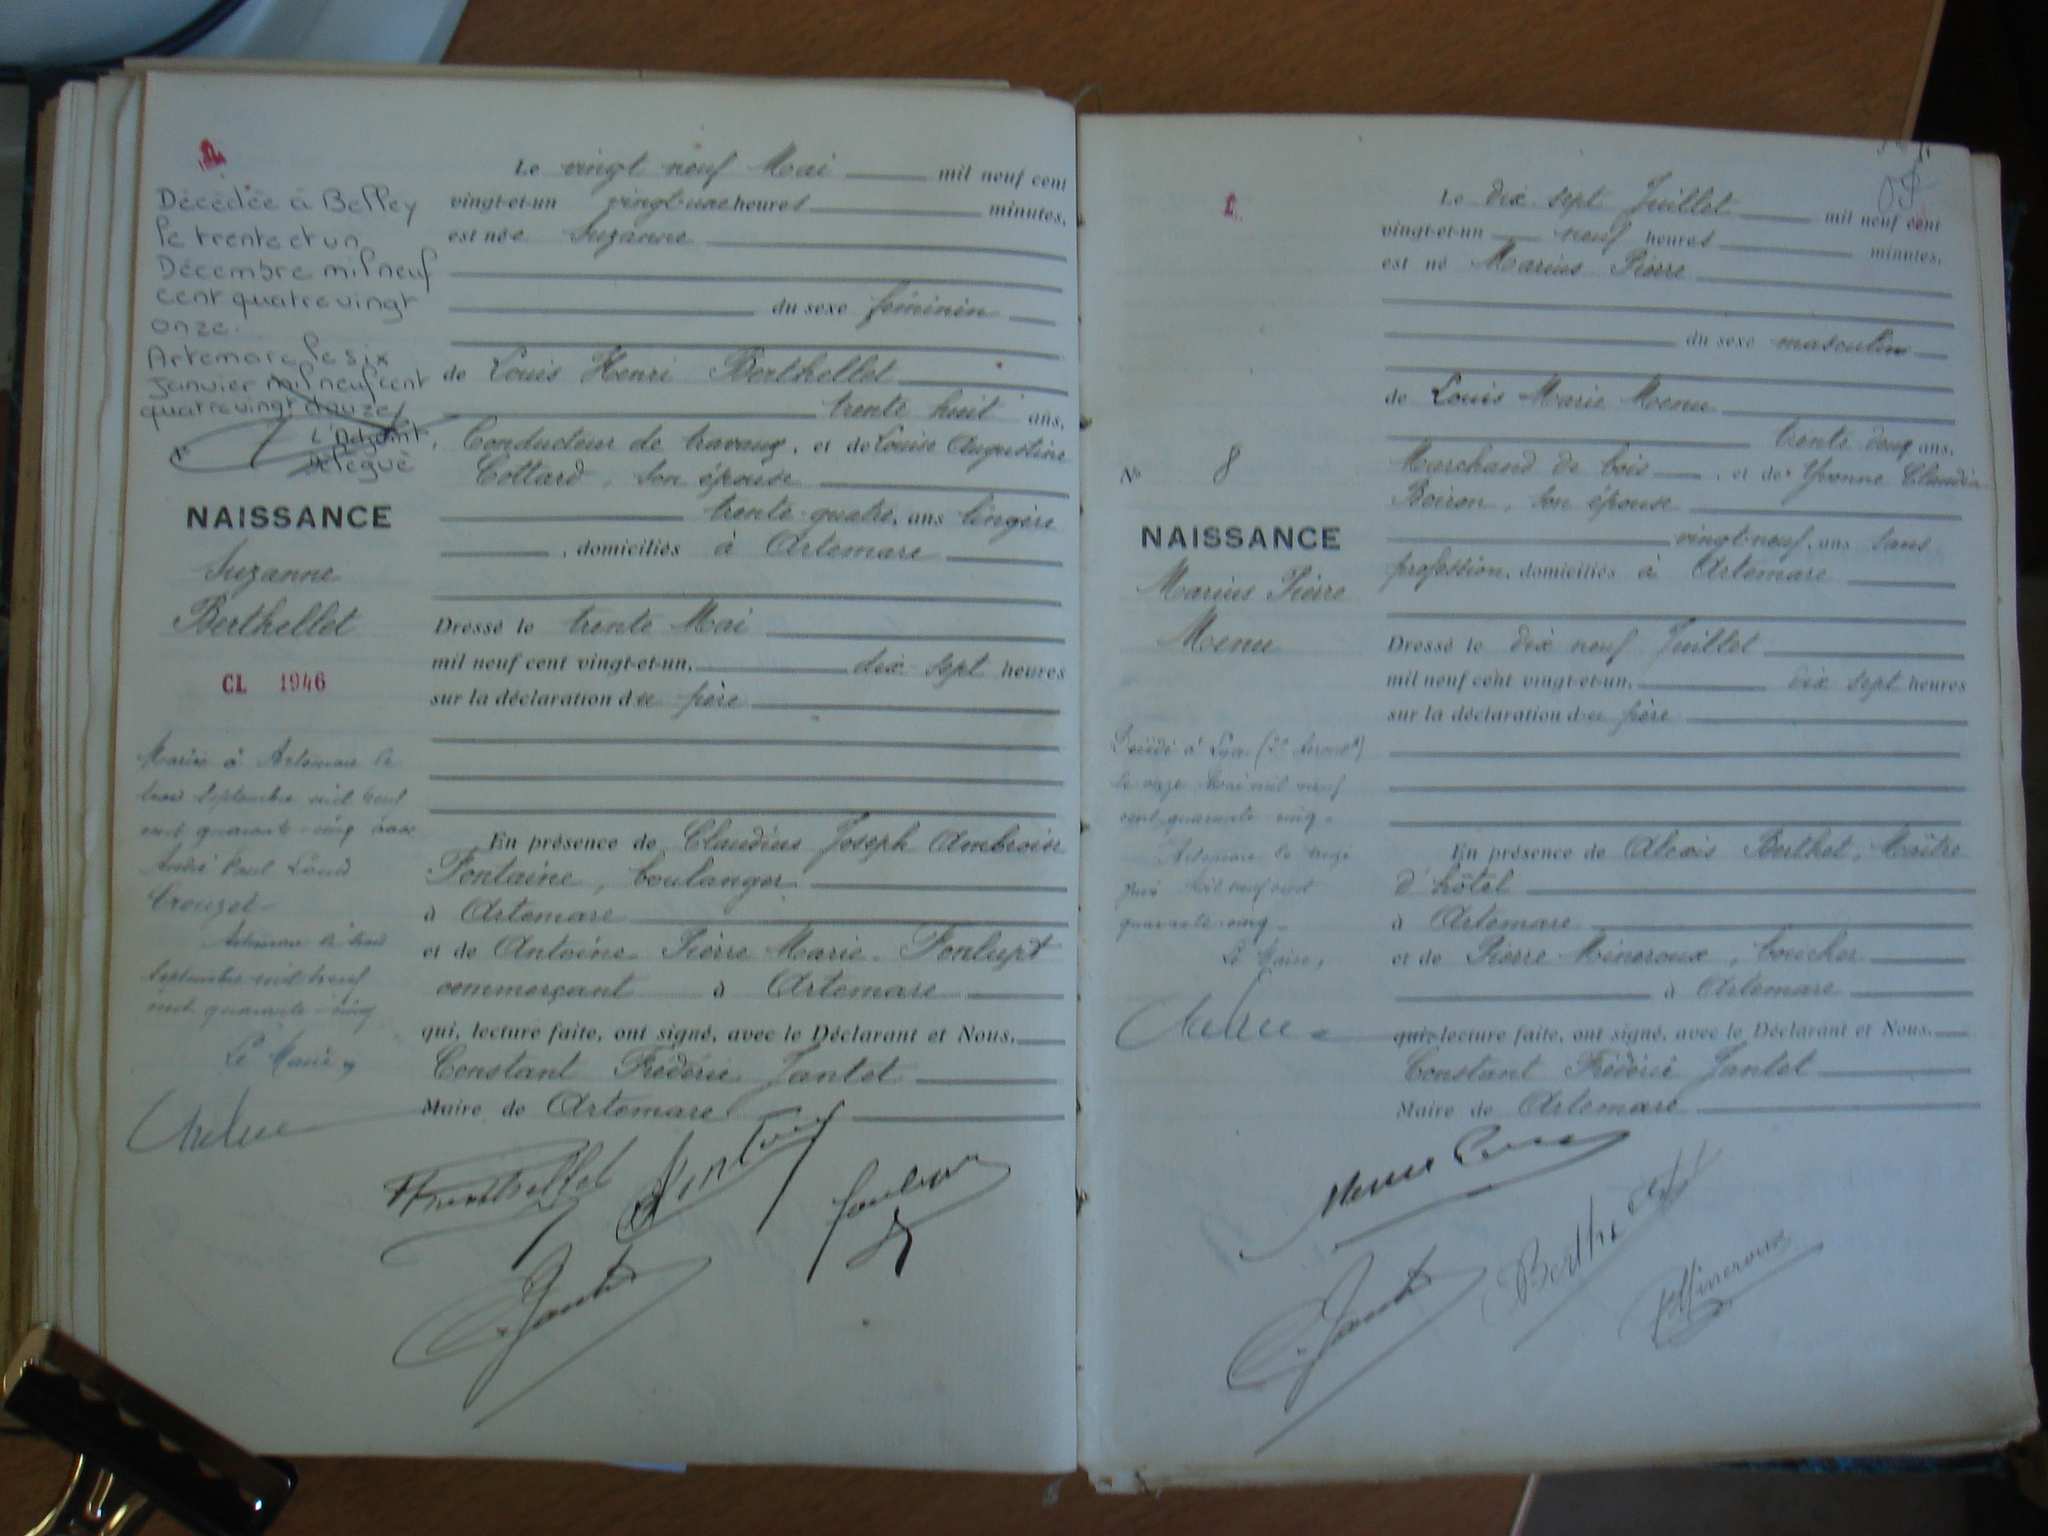 Décédée à Belley
le trente et un
Décembre mil neuf
cent quatre vingt
onze.
Artemare le six
janvier mil neuf cent
quatre vingt douze
L'Adjoint
délégué
NAISSANCE
Suzanne
Berthellet
CL 1946
Mariée à Artemare le
trois Septembre mil neuf
cent quarante-cinq avec
André Paul Louis
Crouzet
Artemare le trois
Septembre mil neuf
cent quarante-cinq
Le Maire,
Le vingt neuf Mai mil neuf cent
vingt-et-un vingt-une heures minutes,
est née Suzanne
du sexe féminin
de Louis Henri Berthellet
trente huit ans,
Conducteur de travaux, et de Louise Augustine
Cottard, son épouse
trente-quatre, ans lingère
, domiciliés à Artemare
Dressé le trente Mai
mil neuf cent vingt-et-un, dix sept heures
sur la déclaration du père
En présence de Claudius Joseph Ambroise
Fontaine, boulanger
à Artemare
et de Antoine Pierre Marie Fonlupt
commerçant à Artemare
qui, lecture faite, ont signé, avec le Déclarant et Nous,
Constant Frédéric Jantet
Maire de Artemare
HBerthellet
Jantet
N° 8
NAISSANCE
Marius Pierre
Menu
Décédé à Lyon
le onze Mai mil neuf
cent quarante-cinq.
Artemare le treize
juin mil neuf cent
quarante-cinq.
Le Maire,
Le dix sept Juillet mil neuf cent
vingt-et-un neuf heures minutes,
est né Marius Pierre
du sexe masculin
de Louis Marie Menu
trente deux ans,
Marchand de bois, et de Yvonne Claudia
Boiron, son épouse
vingt-neuf, ans sans
profession, domiciliés à Artemare
Dressé le dix neuf Juillet
mil neuf cent vingt-et-un, dix sept heures
sur la déclaration du père
En présence de Alexis Berthet, Maître
d'hôtel
à Artemare
et de Pierre Mineroux, boucher
à Artemare
qui, lecture faite, ont signé, avec le Déclarant et Nous,
Constant Frédéric Jantet
Maire de Artemare
Berthet
PMineroux
Jantet